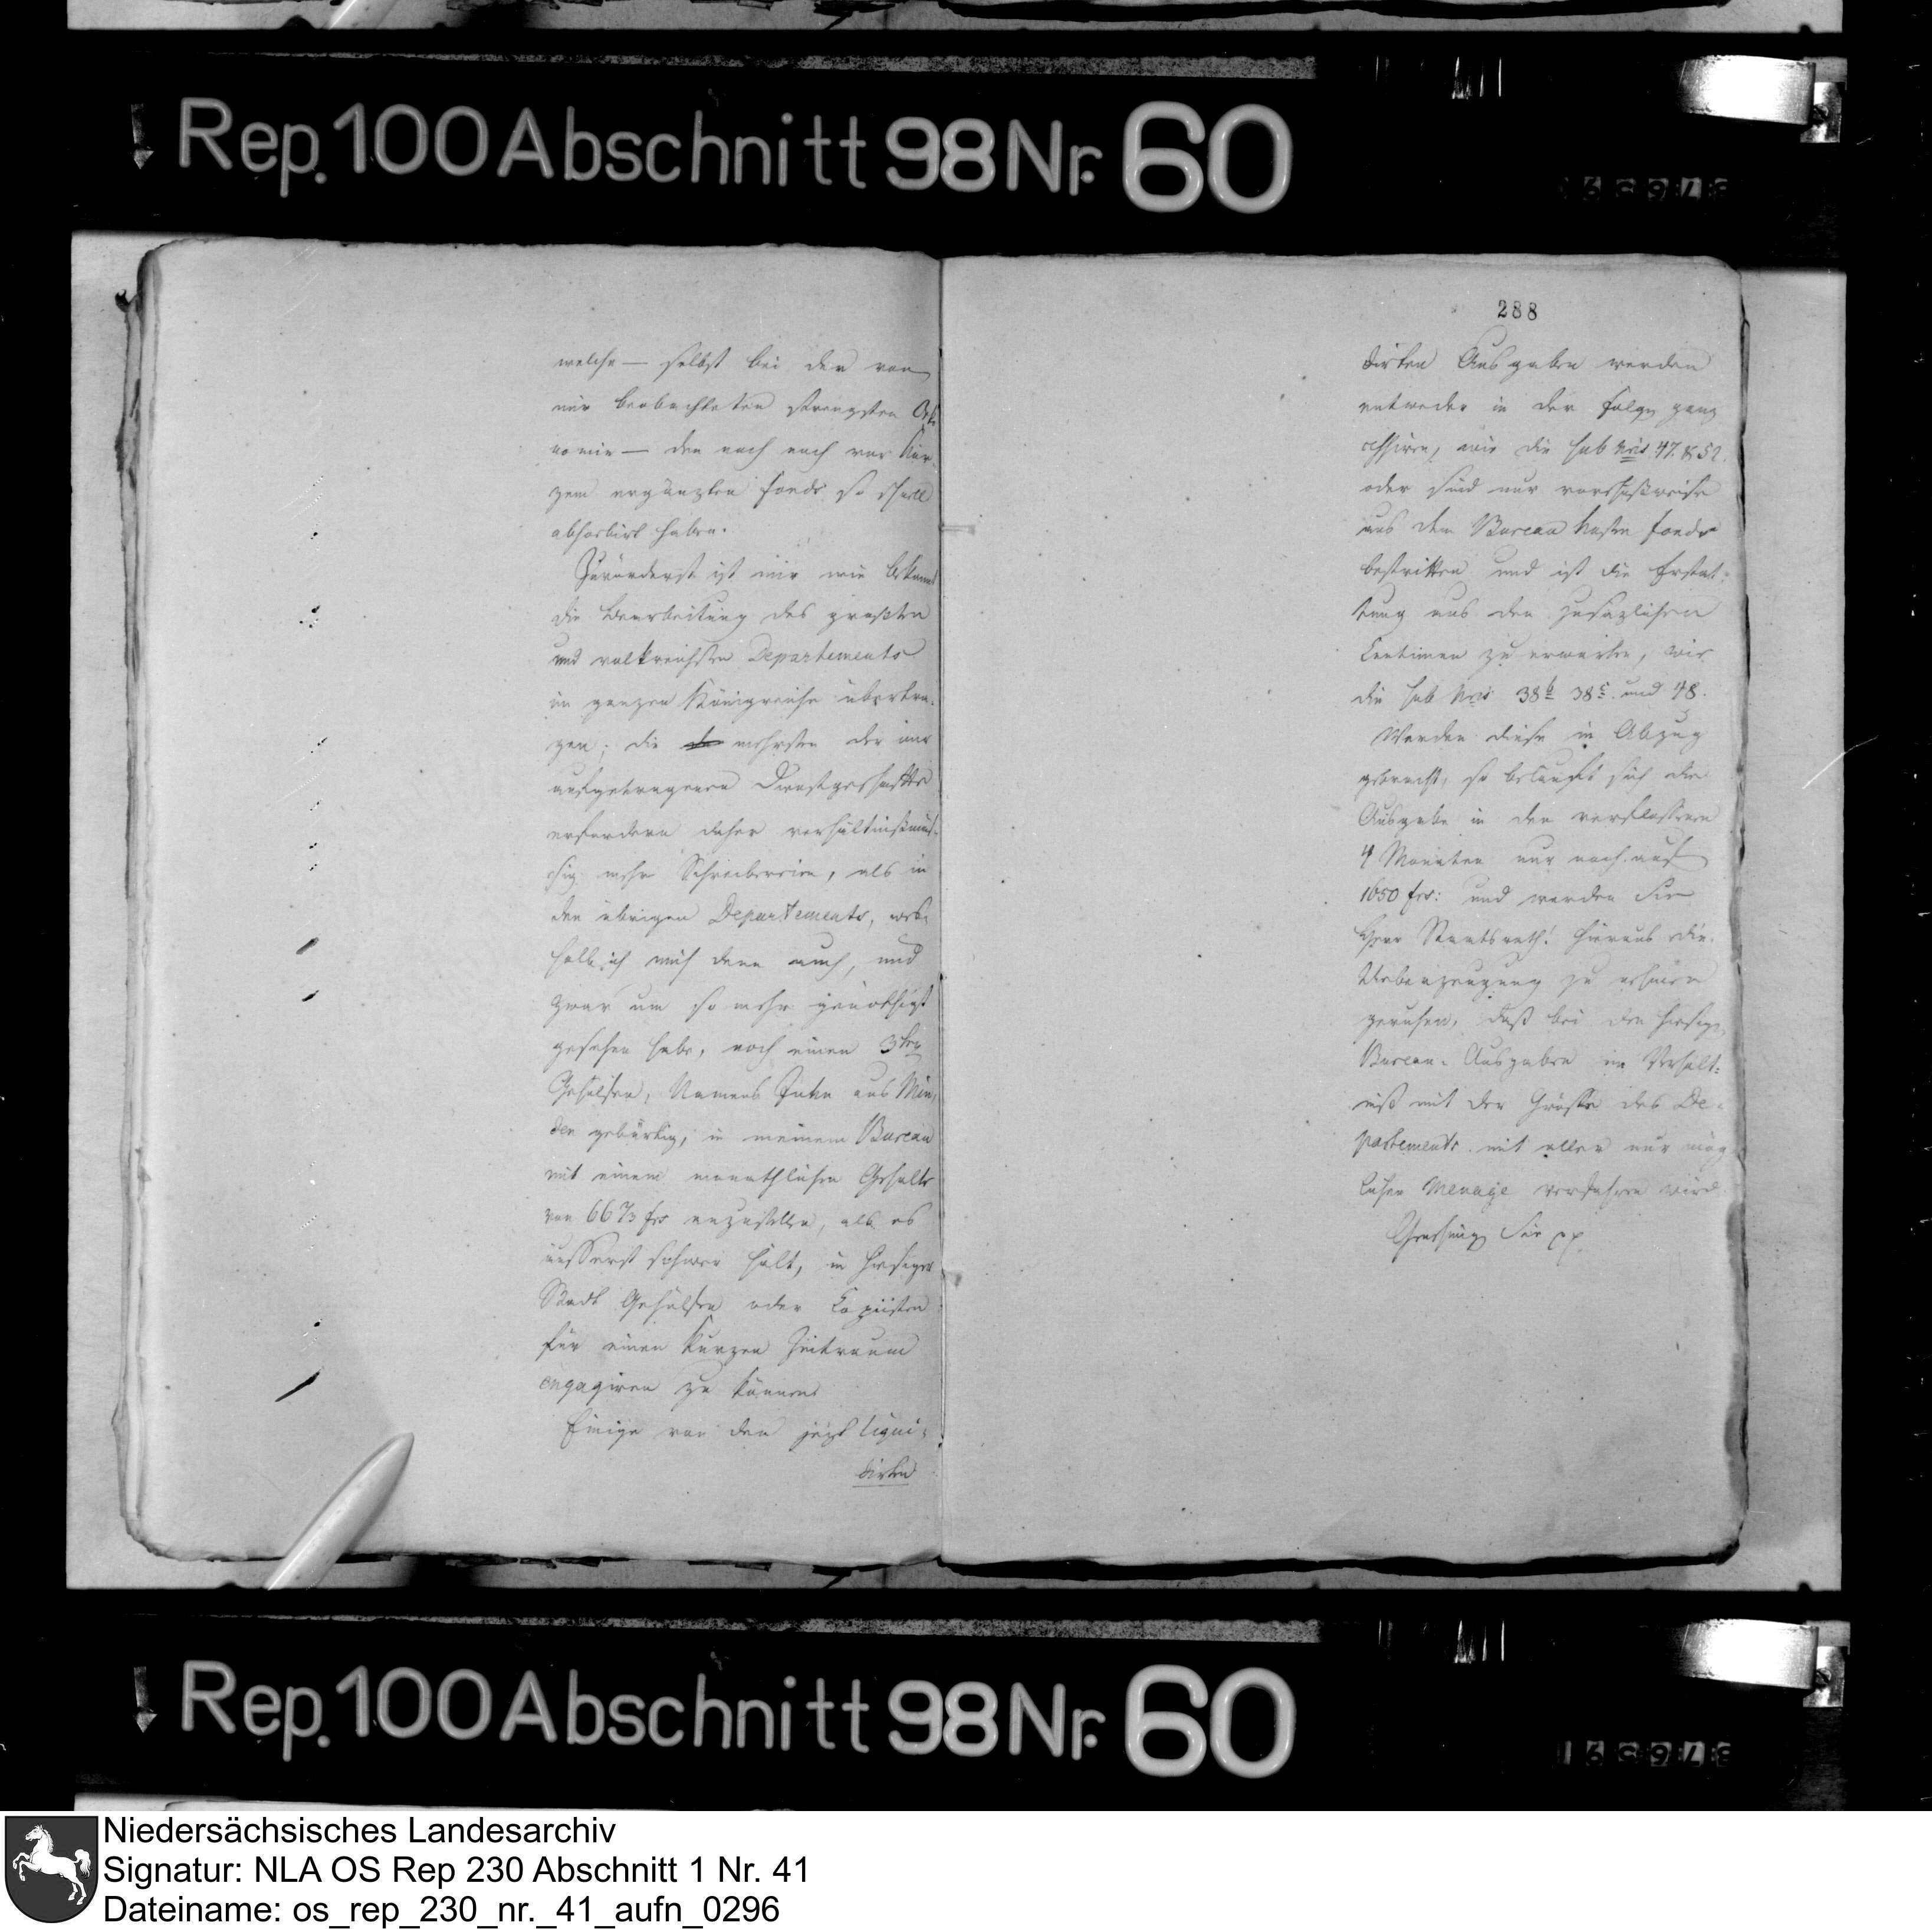 Rep. 100 Abschnitt 98 Nr. 60
welche — selbst bei der von
mir beobachteten strengsten Oeko
nomie — den noch nach vor Kur-
zem ergänzten fonds so schnell
absorbirt haben.
Zuvörderst ist mir wie bekannt
die Bearbeitung des größten
und volkreichsten Departements
im ganzen Königreiche übertra-
gen; die mehrsten der mir
aufgetragenen Dienstgeschäfte
erfordern daher verhältnißmäs-
sig mehr Schreibereien, als in
den übrigen Departements, wes-
halb ich mich denn auch, und
zwar um so mehr genöthigt
gesehen habe, noch einen 3ten
Gehülfen, Namens aus Min-
den gebürtig, in meinem Bureau
mit einem monathlichen Gehalte
von 66 2/3 frs anzustellen, als es
äusserst schwer hält, in hiesiger
Stadt Gehülfen oder Copiisten
für einen kurzen Zeitraum
engagiren zu können.
Einige von den jezt liqui-
dirten
288
dirten Ausgaben werden
entweder in der Folge ganz
cessiren, wie die sub Nris 47. & 52.
oder sind nur vorschußweise
aus dem Bureau Kosten fonds
bestritten und ist die Erstat-
tung aus den zusäzlichen
Centimen zu erwarten, wie
die sub Nris 38b 38c. und 48.
Werden diese in Abzug
gebracht, so beläuft sich die
Ausgabe in den verflossenen
4 Monaten nur noch auf
1650 frs: und werden Sie
Herr Staatsrath! hieraus die
Ueberzeugung zu nehmen
geruhen, daß bei den hiesigen
Bureau-Ausgaben im Verhält-
niß mit der Größe des De-
partements mit aller nur mög
lichen Menage verfahren wird.
Genehmigen Sie pp
Rep. 100 Abschnitt 98 Nr. 60
Niedersächsisches Landesarchiv
Signatur: NLA OS Rep 230 Abschnitt 1 Nr. 41
Dateiname: os_rep_230_nr._41_aufn_0296